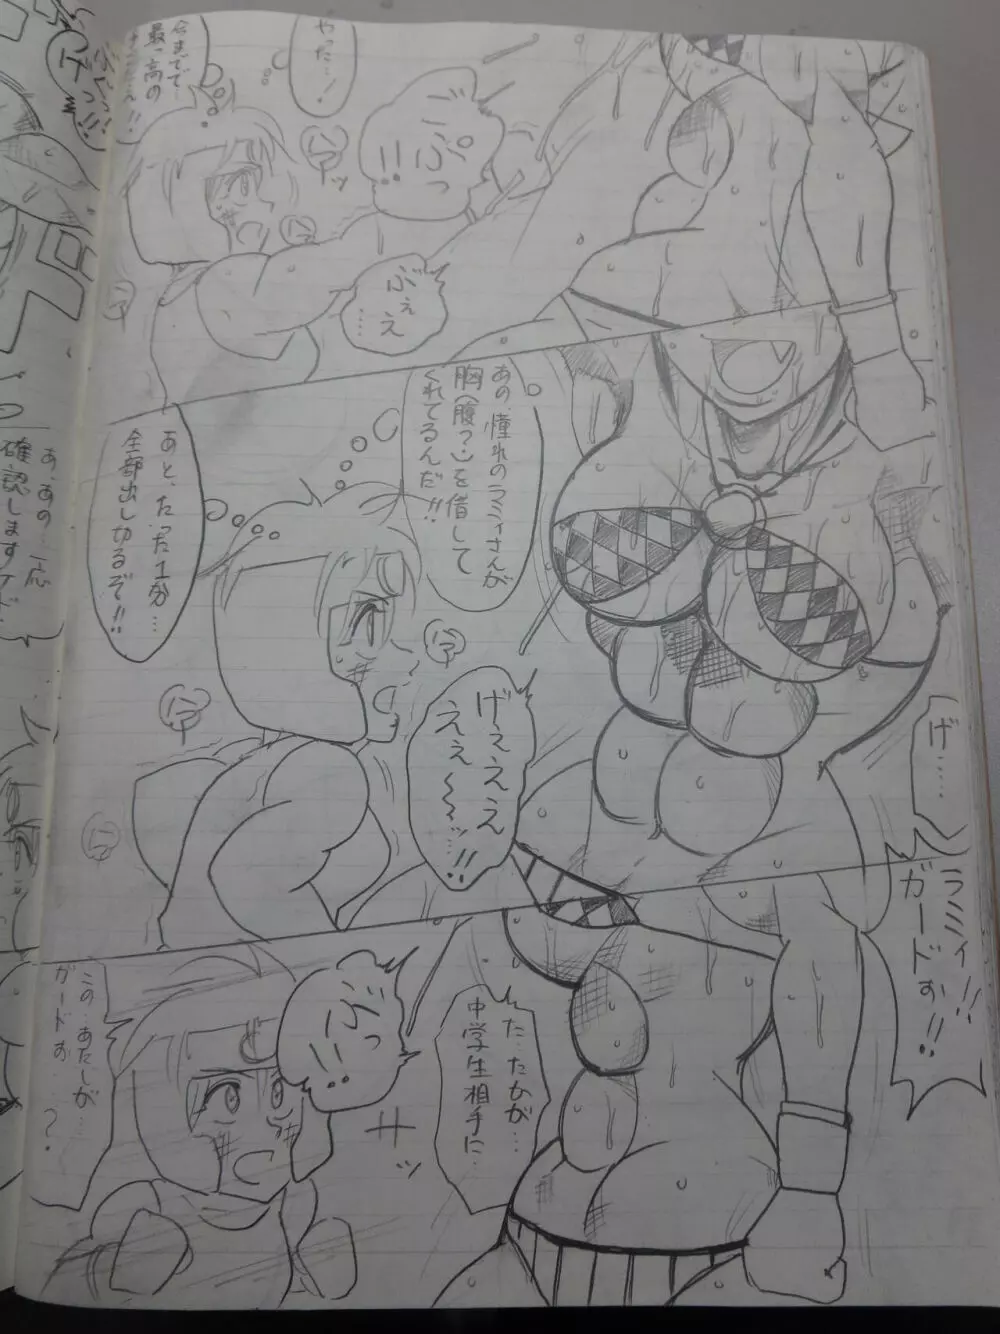 やった…!
今までで…
最っ高の
ごぷっ
!!
ハァ
ハァッ
ハァ
ぶぇぇ
……
げっ!!
あの、憧れのラミィさんが
胸(腹?)を借して
くれてるんだ!!
あと、たった1分…
全部出しきるぞ!!
ハァ
ハァ
ハァ
げぇぇぇ
ぇぇ〜〜ッ…!!
げ……
ラミィ!!
ガードぉ!!
た…たかが…
中学生相手に…
ぶっ
!!
サッ
この…あたしが…
ガードぉ……?
あ、あの…一応
確認しますけど